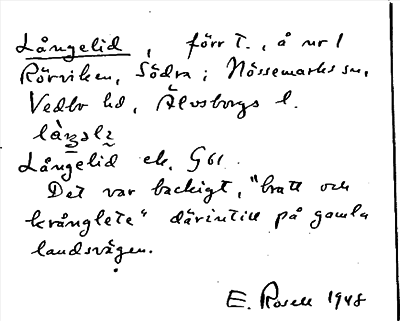 Långelid, förr T., å nr 1
Rörviken, Södra; Nössemarks sn,
Vedbo hd, Älvsborgs l.
Långelid ek. G61.
Det var backigt, "bratt och
krånglete" därintill på gamla
landsvägen.
E. Rosell 1948